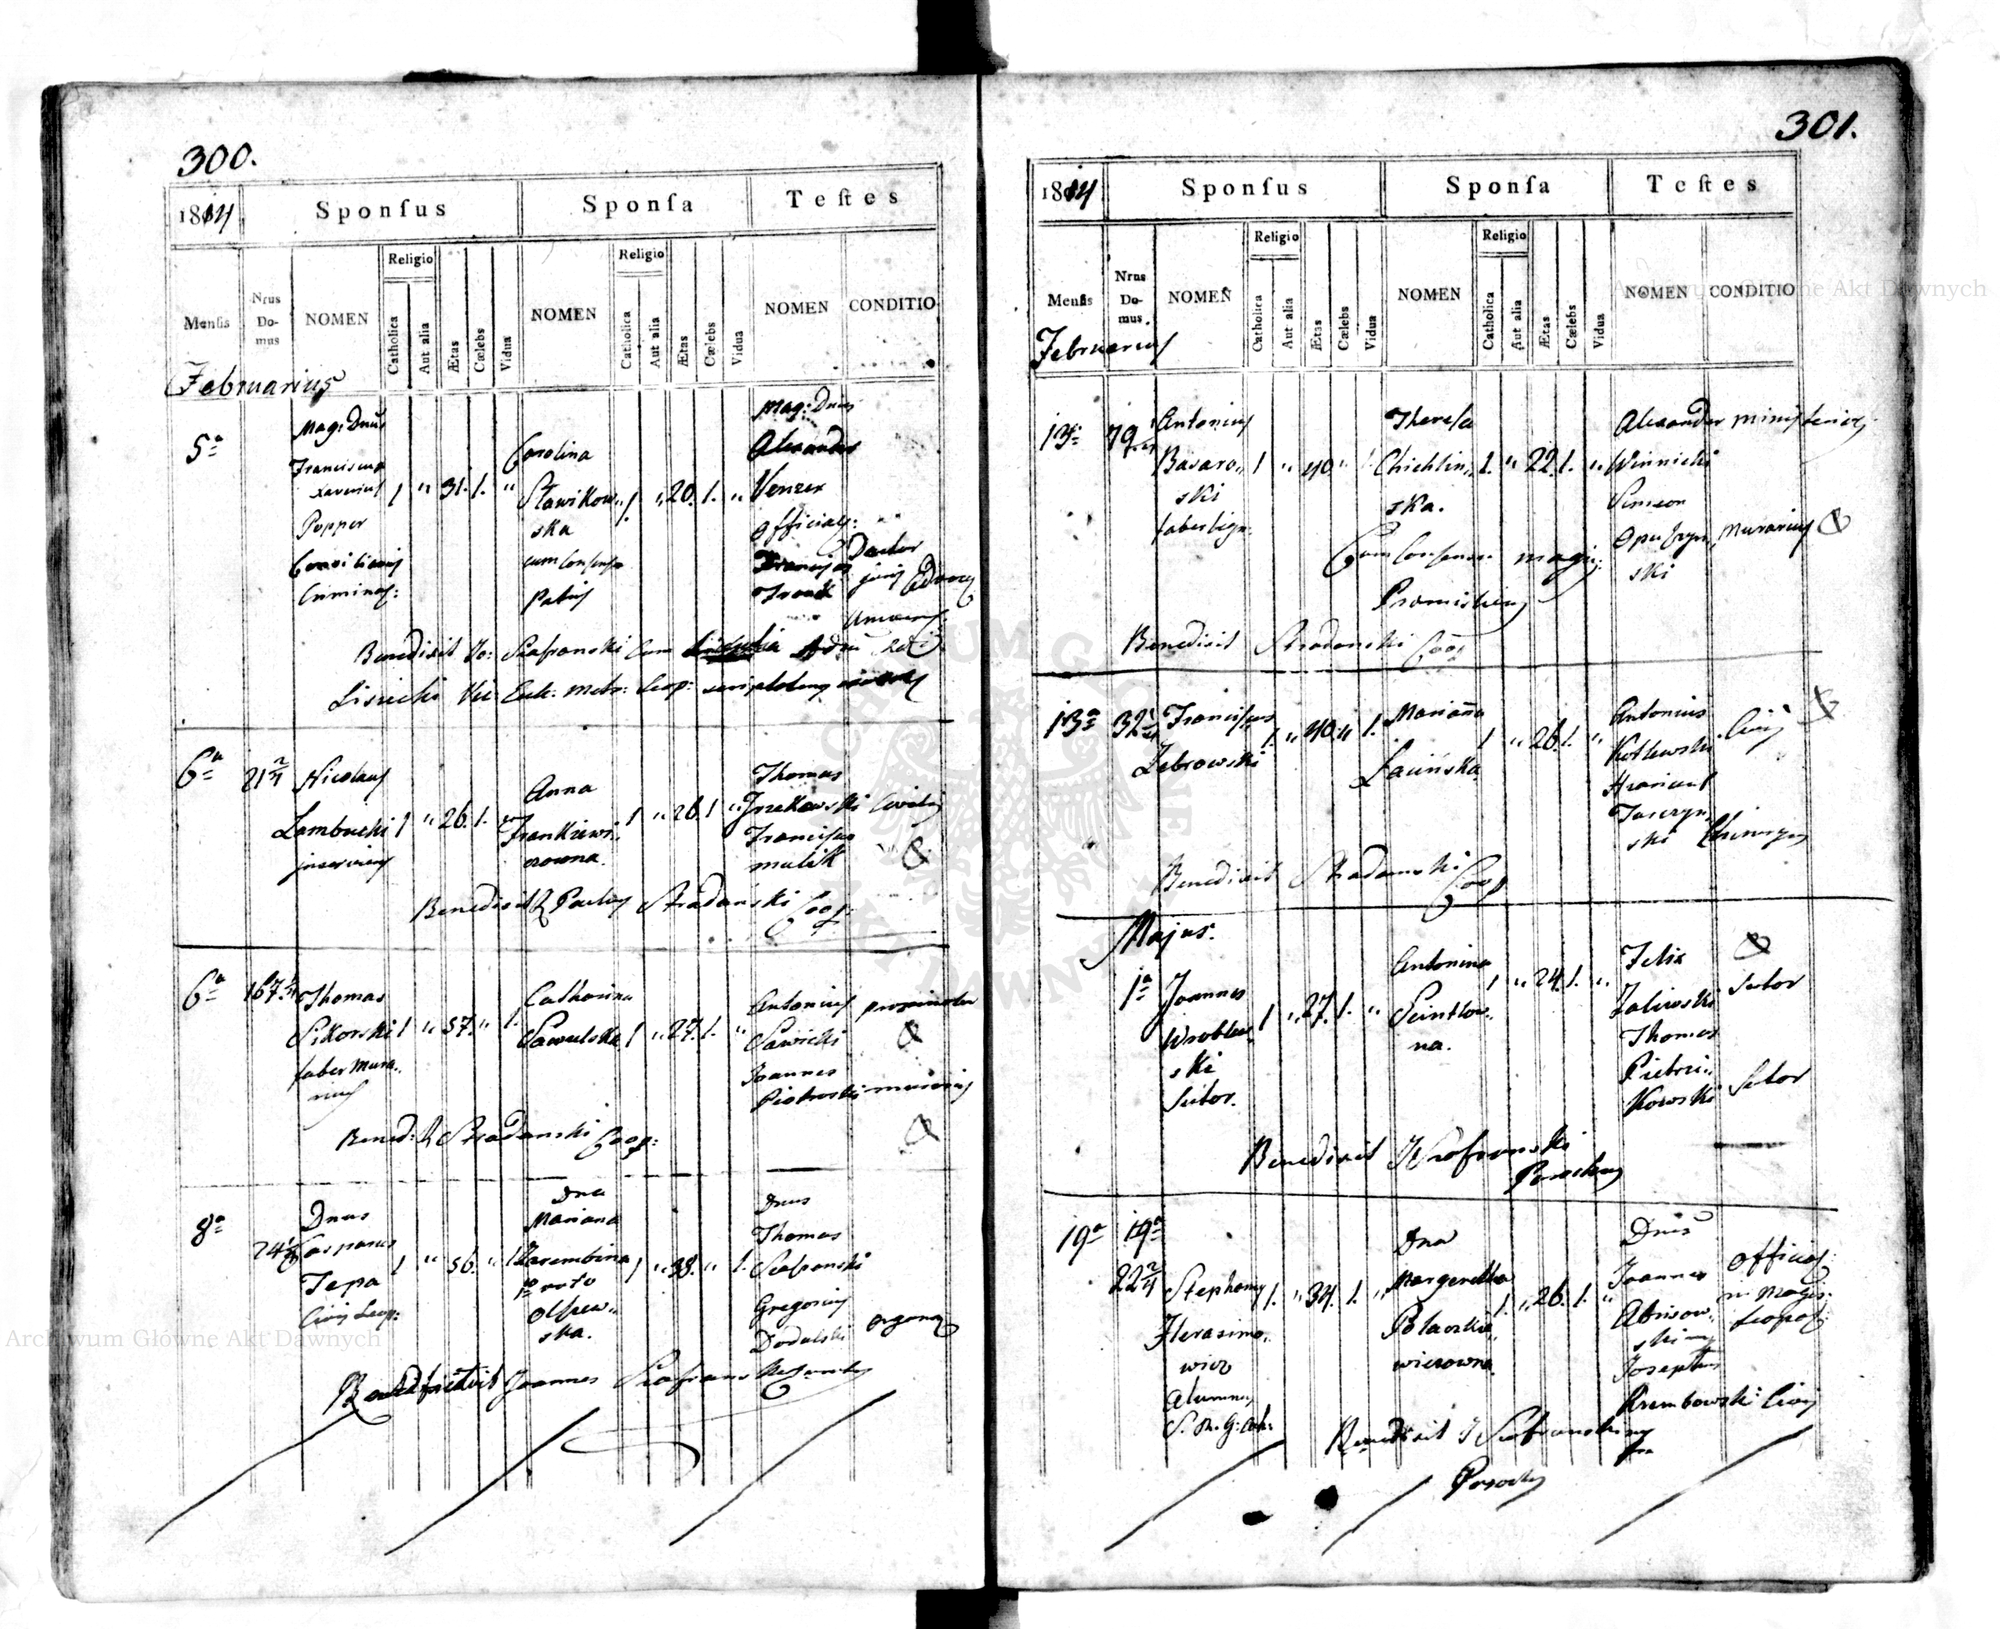 300.
1814
Sponsus
Sponsa
Testes
Mensis
Nrus Domus
NOMEN
Religio
Catholica
Aut alia
Ætas
Cælebs
Vidua
NOMEN
Religio
Catholica
Aut alia
Ætas
Cælebs
Vidua
NOMEN
CONDITIO
Februarius
5a
Mag: Dnus
Franciscus
Xaverius
Popper
Criminal:
1 " 31. 1. "
Carolina
Sławikow„
ska
cum Consensu
Patris
1. " 20. 1. "
Mag: Dnus
Alexander
Venzer
official:
Doctor
juris
Benedixit Jo: Szafranski Cum
Lisiecki Vic: Eccl: Metr: Leop:
6a
21 2/4
Nicolaus
Lambucki
inserviens
1 " 26. 1. "
Anna
Frankiewi„
czowna.
1 " 26. 1 "
Thomas
Franciscus
Malik
Civilis
Benedixit R Paulus Stradanski Coop:
6a
167. 2/4
Thomas
Sikorski
faber Mura„
rius
1 " 57. " 1.
Catharina
Pawulska
1. " 27. 1. "
Antonius
Sawicki
Joannes
Piotrowski
murarius
Bened: R Stradanski Coop:
8a
Dnus
Casparus
Tepa
Civis Leop:
1 " 56. " 1.
Dna
Mariana
Zarembina
1o voto
Olszew„
ska.
1 " 38. " 1.
Dnus
Thomas
Szafranski
Gregorius
Dodulski
Benedixit Joannes Szafranski
301.
1814
Sponsus
Sponsa
Testes
Mensis
Nrus Domus
NOMEN
Religio
Catholica
Aut alia
Ætas
Cælebs
Vidua
NOMEN
Religio
Catholica
Aut alia
Ætas
Cælebs
Vidua
NOMEN
CONDITIO
Februarius
13a
79
Antonius
Basaro„
ski
faber lign.
1 " 40 " 1.
Theresa
Chichlin„
ska.
1. " 22. 1. "
Alexander
Winnicki
Simeon
Opuszyn„
ski
Murarius
Cum Consensu
Benedixit Stradanski Coop
13a
32 1/4
Franciscus
Zebrowski
1. " 40. " 1.
Marianna
Lasińska
1 " 26. 1. "
Antonius
Kotlewski
Civis
Jaszczyn„
ski
Chirurgus
Benedixit Stradanski Coop
Majus.
1a
Joannes
Wroblew„
ski
Sutor.
1 " 27. 1. "
Antonina
1 " 24. 1. "
Felix
Zaliwski
Sutor
Thomas
Pietrzi„
kowski
Sutor
Benedixit J Szafranski
Parochus
19a
19a
22 2/4
Stephanus
Herasimo„
wicz
Alumnus
1. " 34. 1. "
Dna
Margeretha
Polaczkie„
wiczowna
1. " 26. 1. "
Dnus
Joannes
Abisow„
ski
Official:
Magis:
Leopol:
Josephus
Krembowski Civis
Benedixit J Szafranski
Parochus
Archiwum Główne Akt Dawnych
Archiwum Główne Akt Dawnych
ARCHIWUM GŁÓWNE AKT DAWNYCH